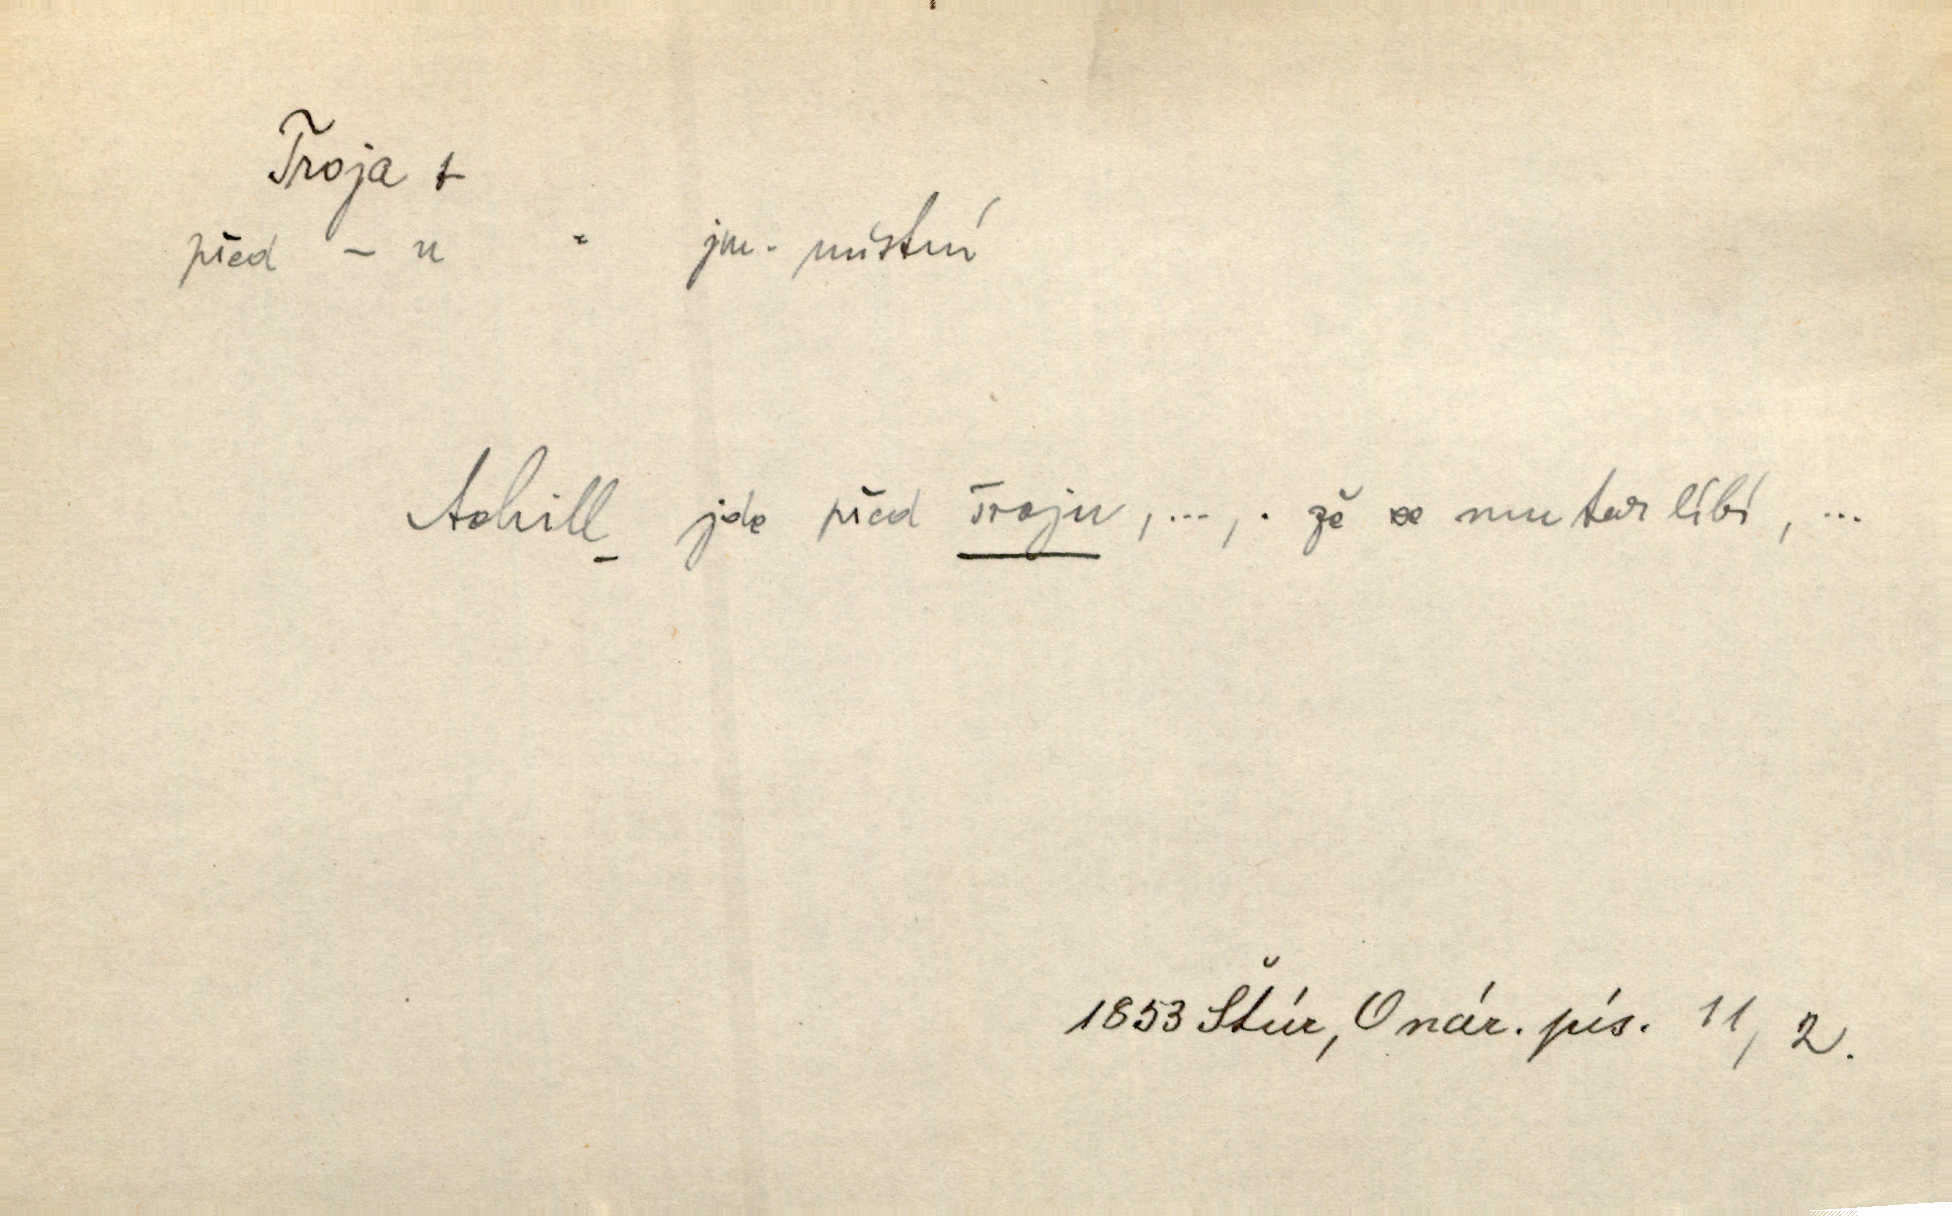 Troja f
před – u = jm. místní
Achill jde před Troju, ..., . že se mu tak líbí, ...
1853 Štúr, O nár. pís. 11, 2.